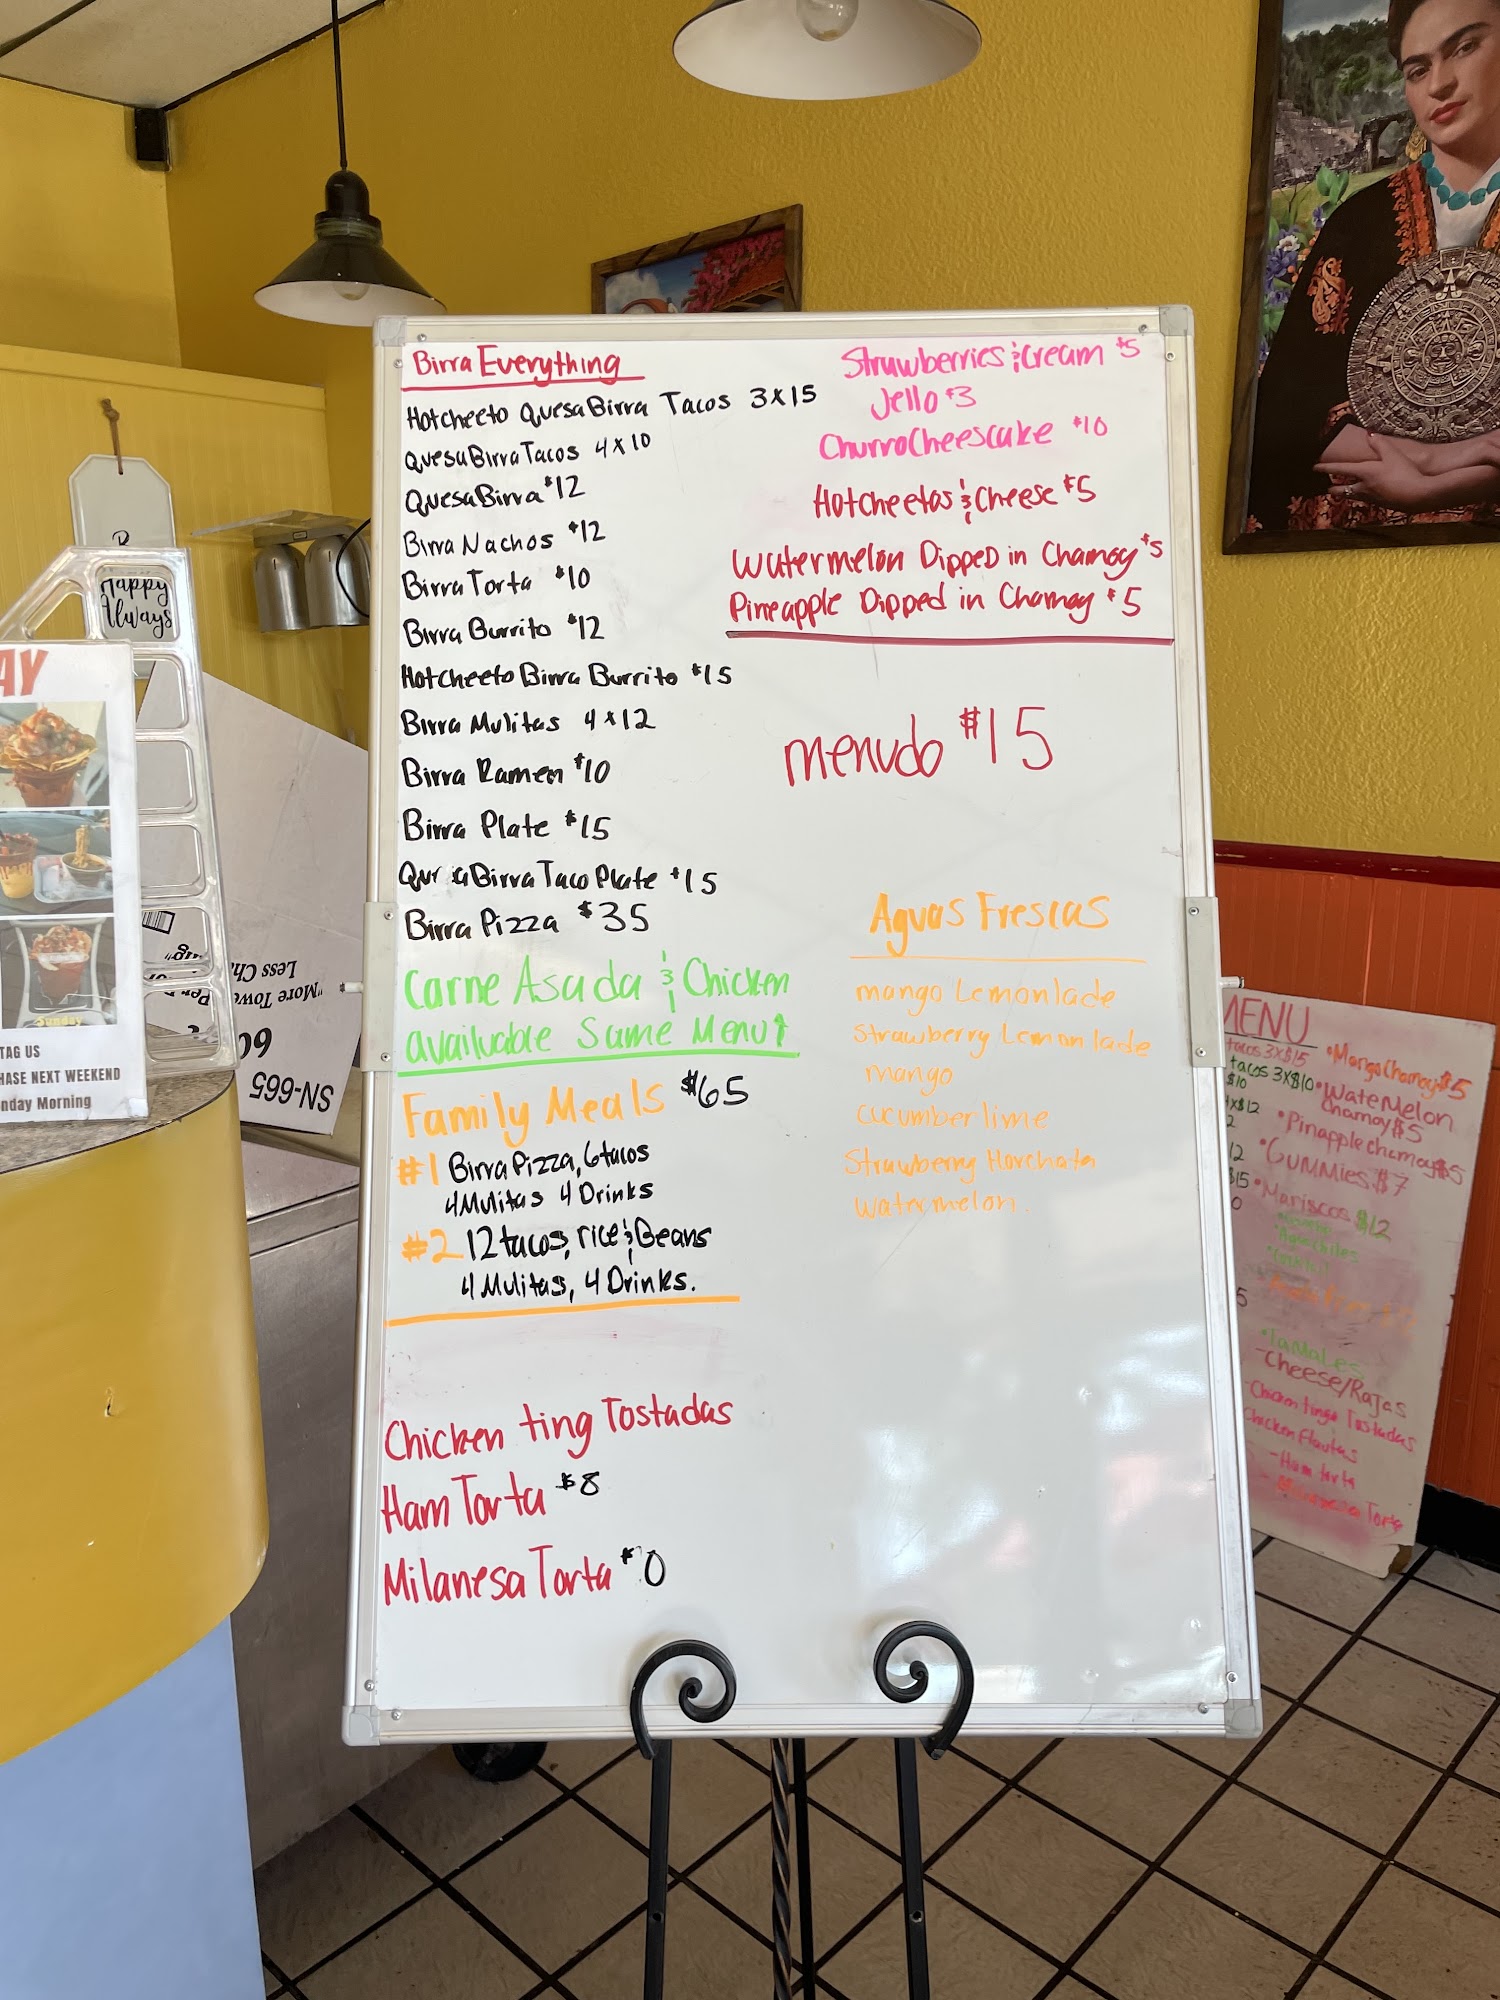 Birra Everything
Hotcheeto QuesaBirra Tacos 3x15
QuesaBirra Tacos 4x10
QuesaBirra $12
Birra Nachos $12
Birra Torta $10
Birra Burrito $12
Hotcheeto Birra Burrito $15
Birra Mulitas 4x12
Birra Ramen $10
Birra Plate $15
Qu aBirra Taco Plate $15
Birra Pizza $35
Carne Asada & Chicken
available Same Menu↑
Family Meals $65
#1 Birra Pizza, 6 tacos
4 Mulitas 4 Drinks
#2 12 tacos, rice & Beans
4 Mulitas, 4 Drinks.
Chicken ting Tostadas
Ham Torta $8
Milanesa Torta $10
Strawberries & Cream $5
Jello $3
Churro Cheescake $10
Hotcheetos & Cheese $5
Watermelon Dipped in Chamoy $5
Pineapple Dipped in Chamoy $5
menudo $15
Aguas Frescas
mango Lemonlade
Strawberry Lemonlade
mango
cucumber lime
Strawberry Horchata
watermelon.
Happy
Always
AY
Sunday
TAG US
HASE NEXT WEEKEND
nday Morning
Less Ch
"More Towe
SN-665
MENU
tacos 3x$15
tacos 3x$10
$10
x$12
12
$15
0
5
•Mango Chamoy $5
•WateMelon
Chamoy $5
•Pinapple chamoy $5
•Gummies $7
•Mariscos $12
Aguachiles
•Tamales
-Cheese/Rajas
-Chicken tinga Tostadas
Chicken Flautas
-Ham torta
Milanesa Torta